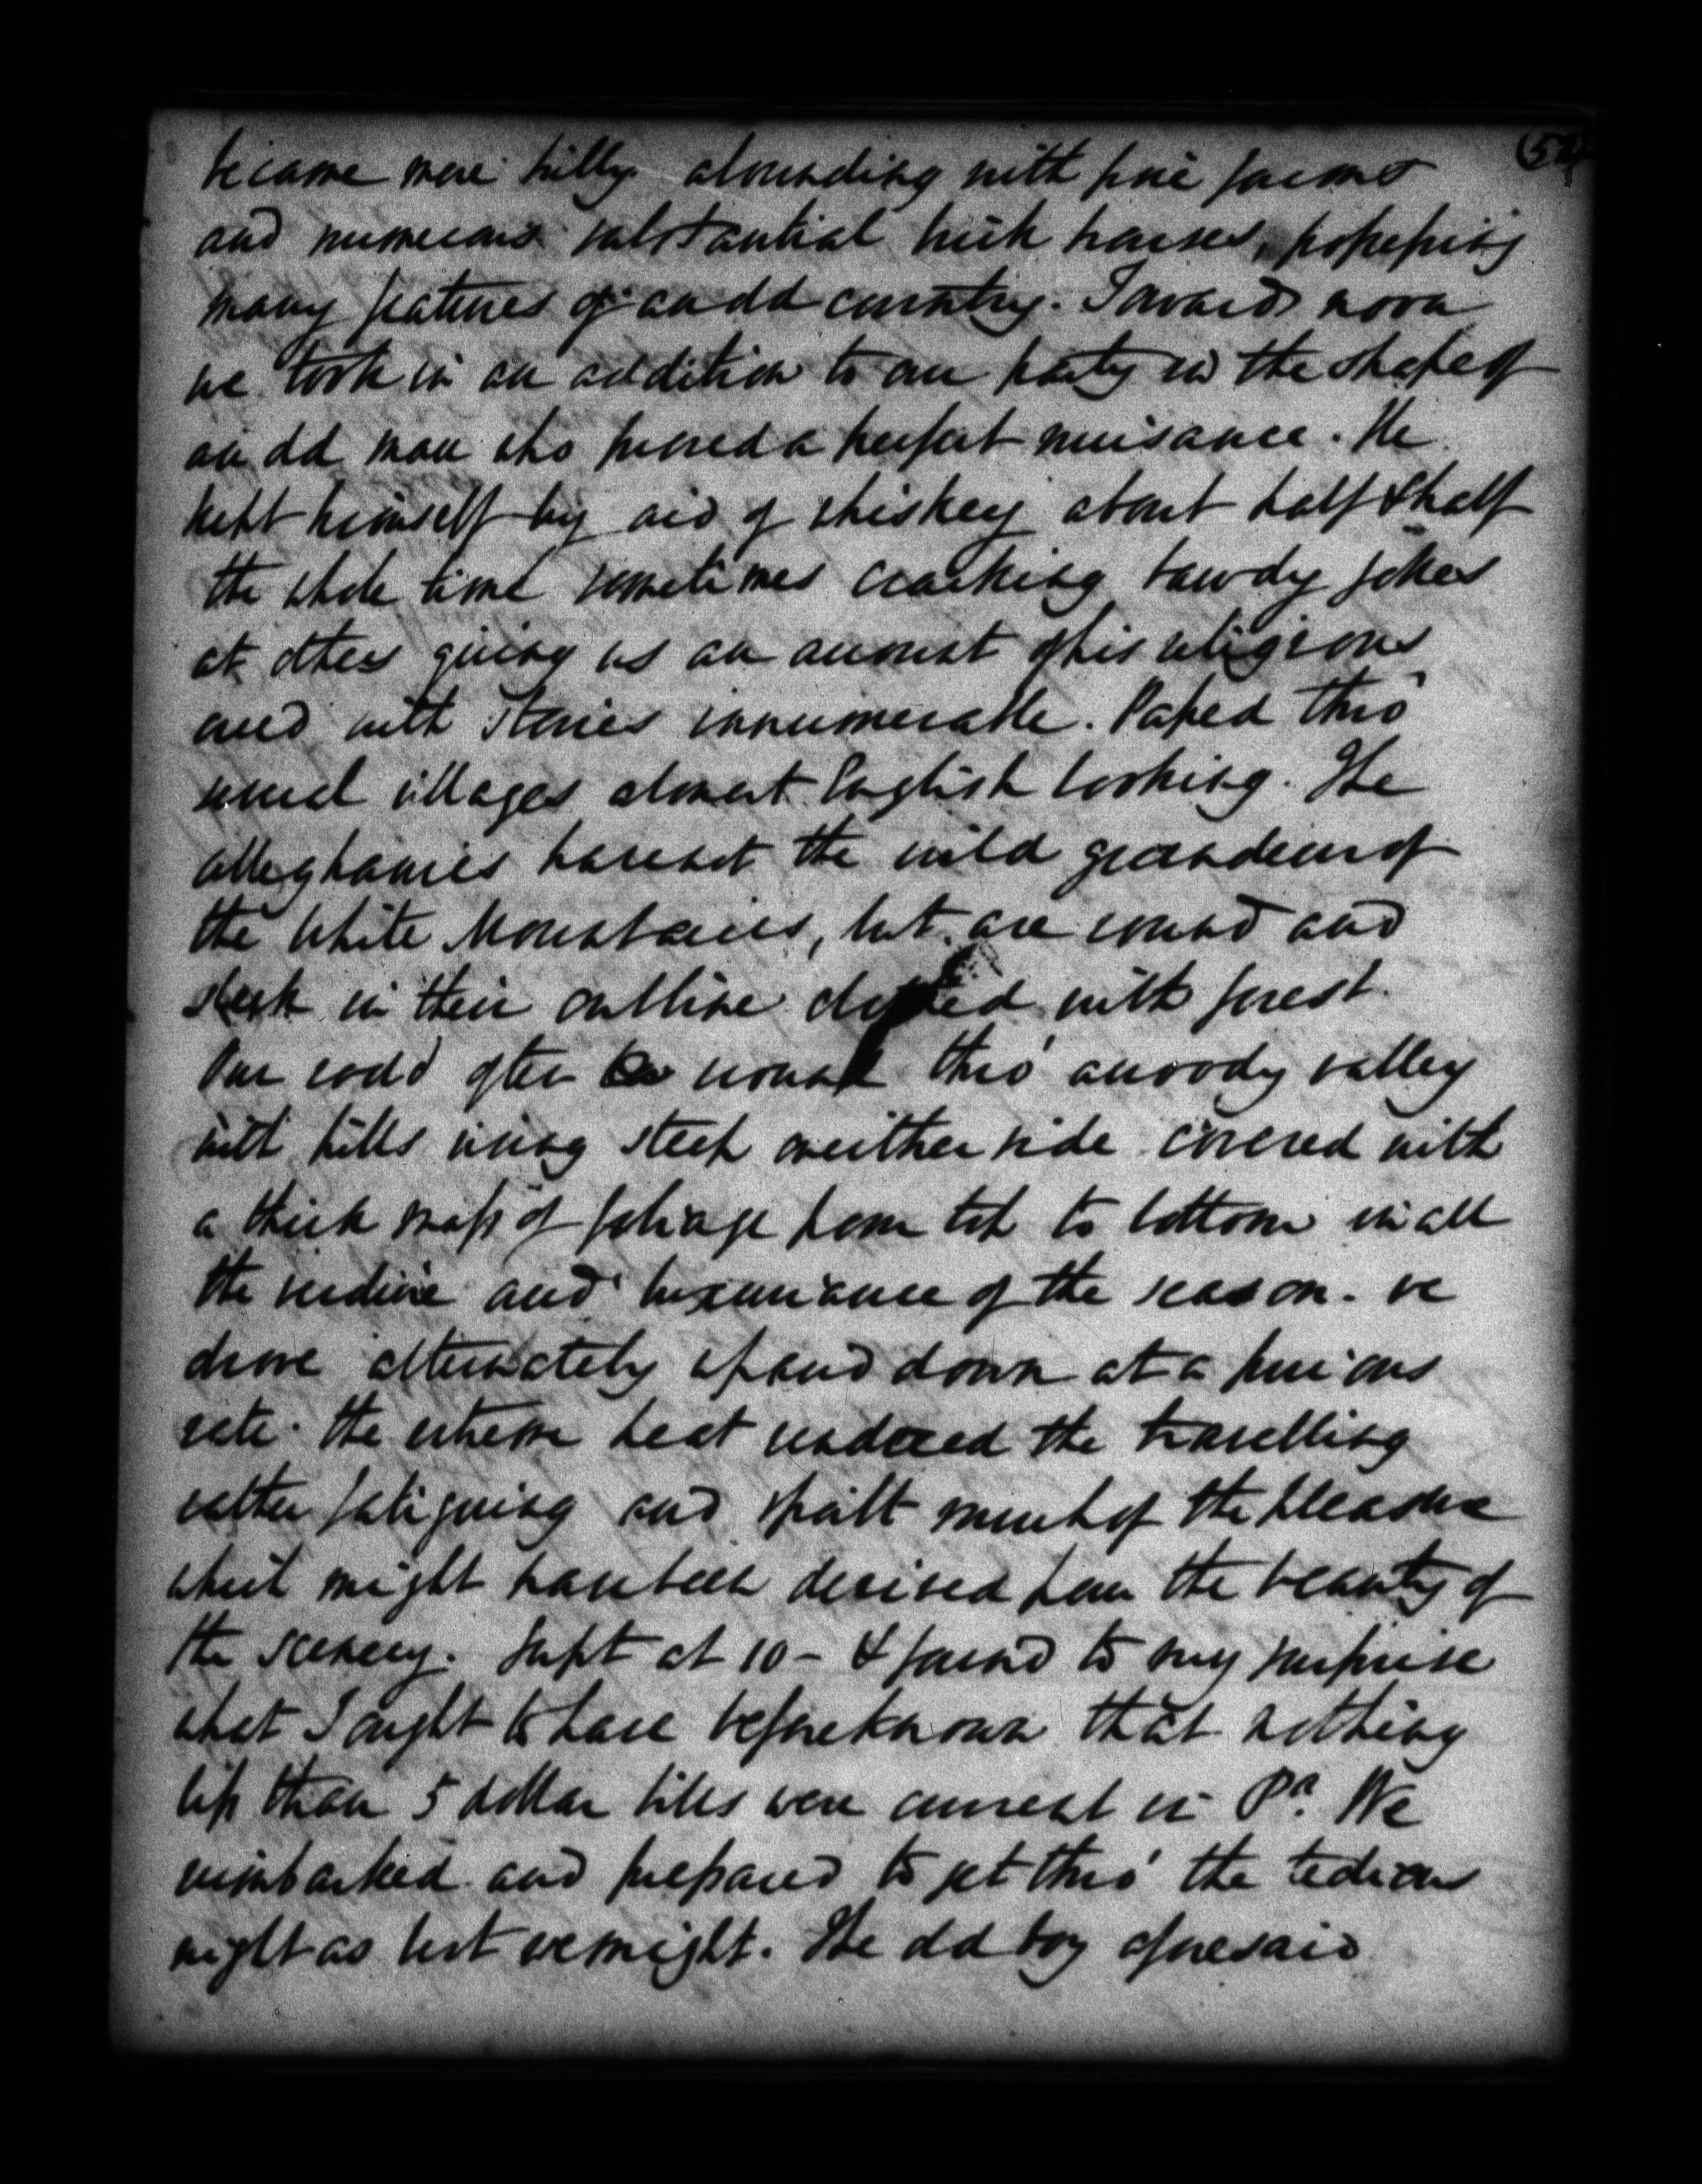 (54
became more hilly abounding with fine farms
and numerous substantial brick houses, possessing
many features of an old country. Towards noon
we took in an addition to our party in the shape of
an old man who proved a perfect nuisance. He
kept himself by aid of whiskey about half & half
the whole time sometimes cracking bawdy jokes
at others giving us an account of his religious
creed with stories innumerable. Passed thro'
several villages almost English looking. The
alleghanies have not the wild grandeur of
the White Mountains, but are round and
sleek in their outline clothed with forest.
Our road often wound thro' a woody valley
with hills rising steep on either side covered with
a thick mass of foliage from top to bottom in all
the verdure and luxuriance of the season. we
drove alternately up and down at a furious
rate. the extreme heat rendered the travelling
rather fatiguing and spoilt much of the pleasure
which might have been derived from the beauty of
the scenery. Supt at 10 - & found to my surprise
what I ought to have before known that nothing
less than 5 dollar bills were current in Pa. We
reimbarked and prepared to get thro' the tedious
night as best we might. The old boy aforesaid